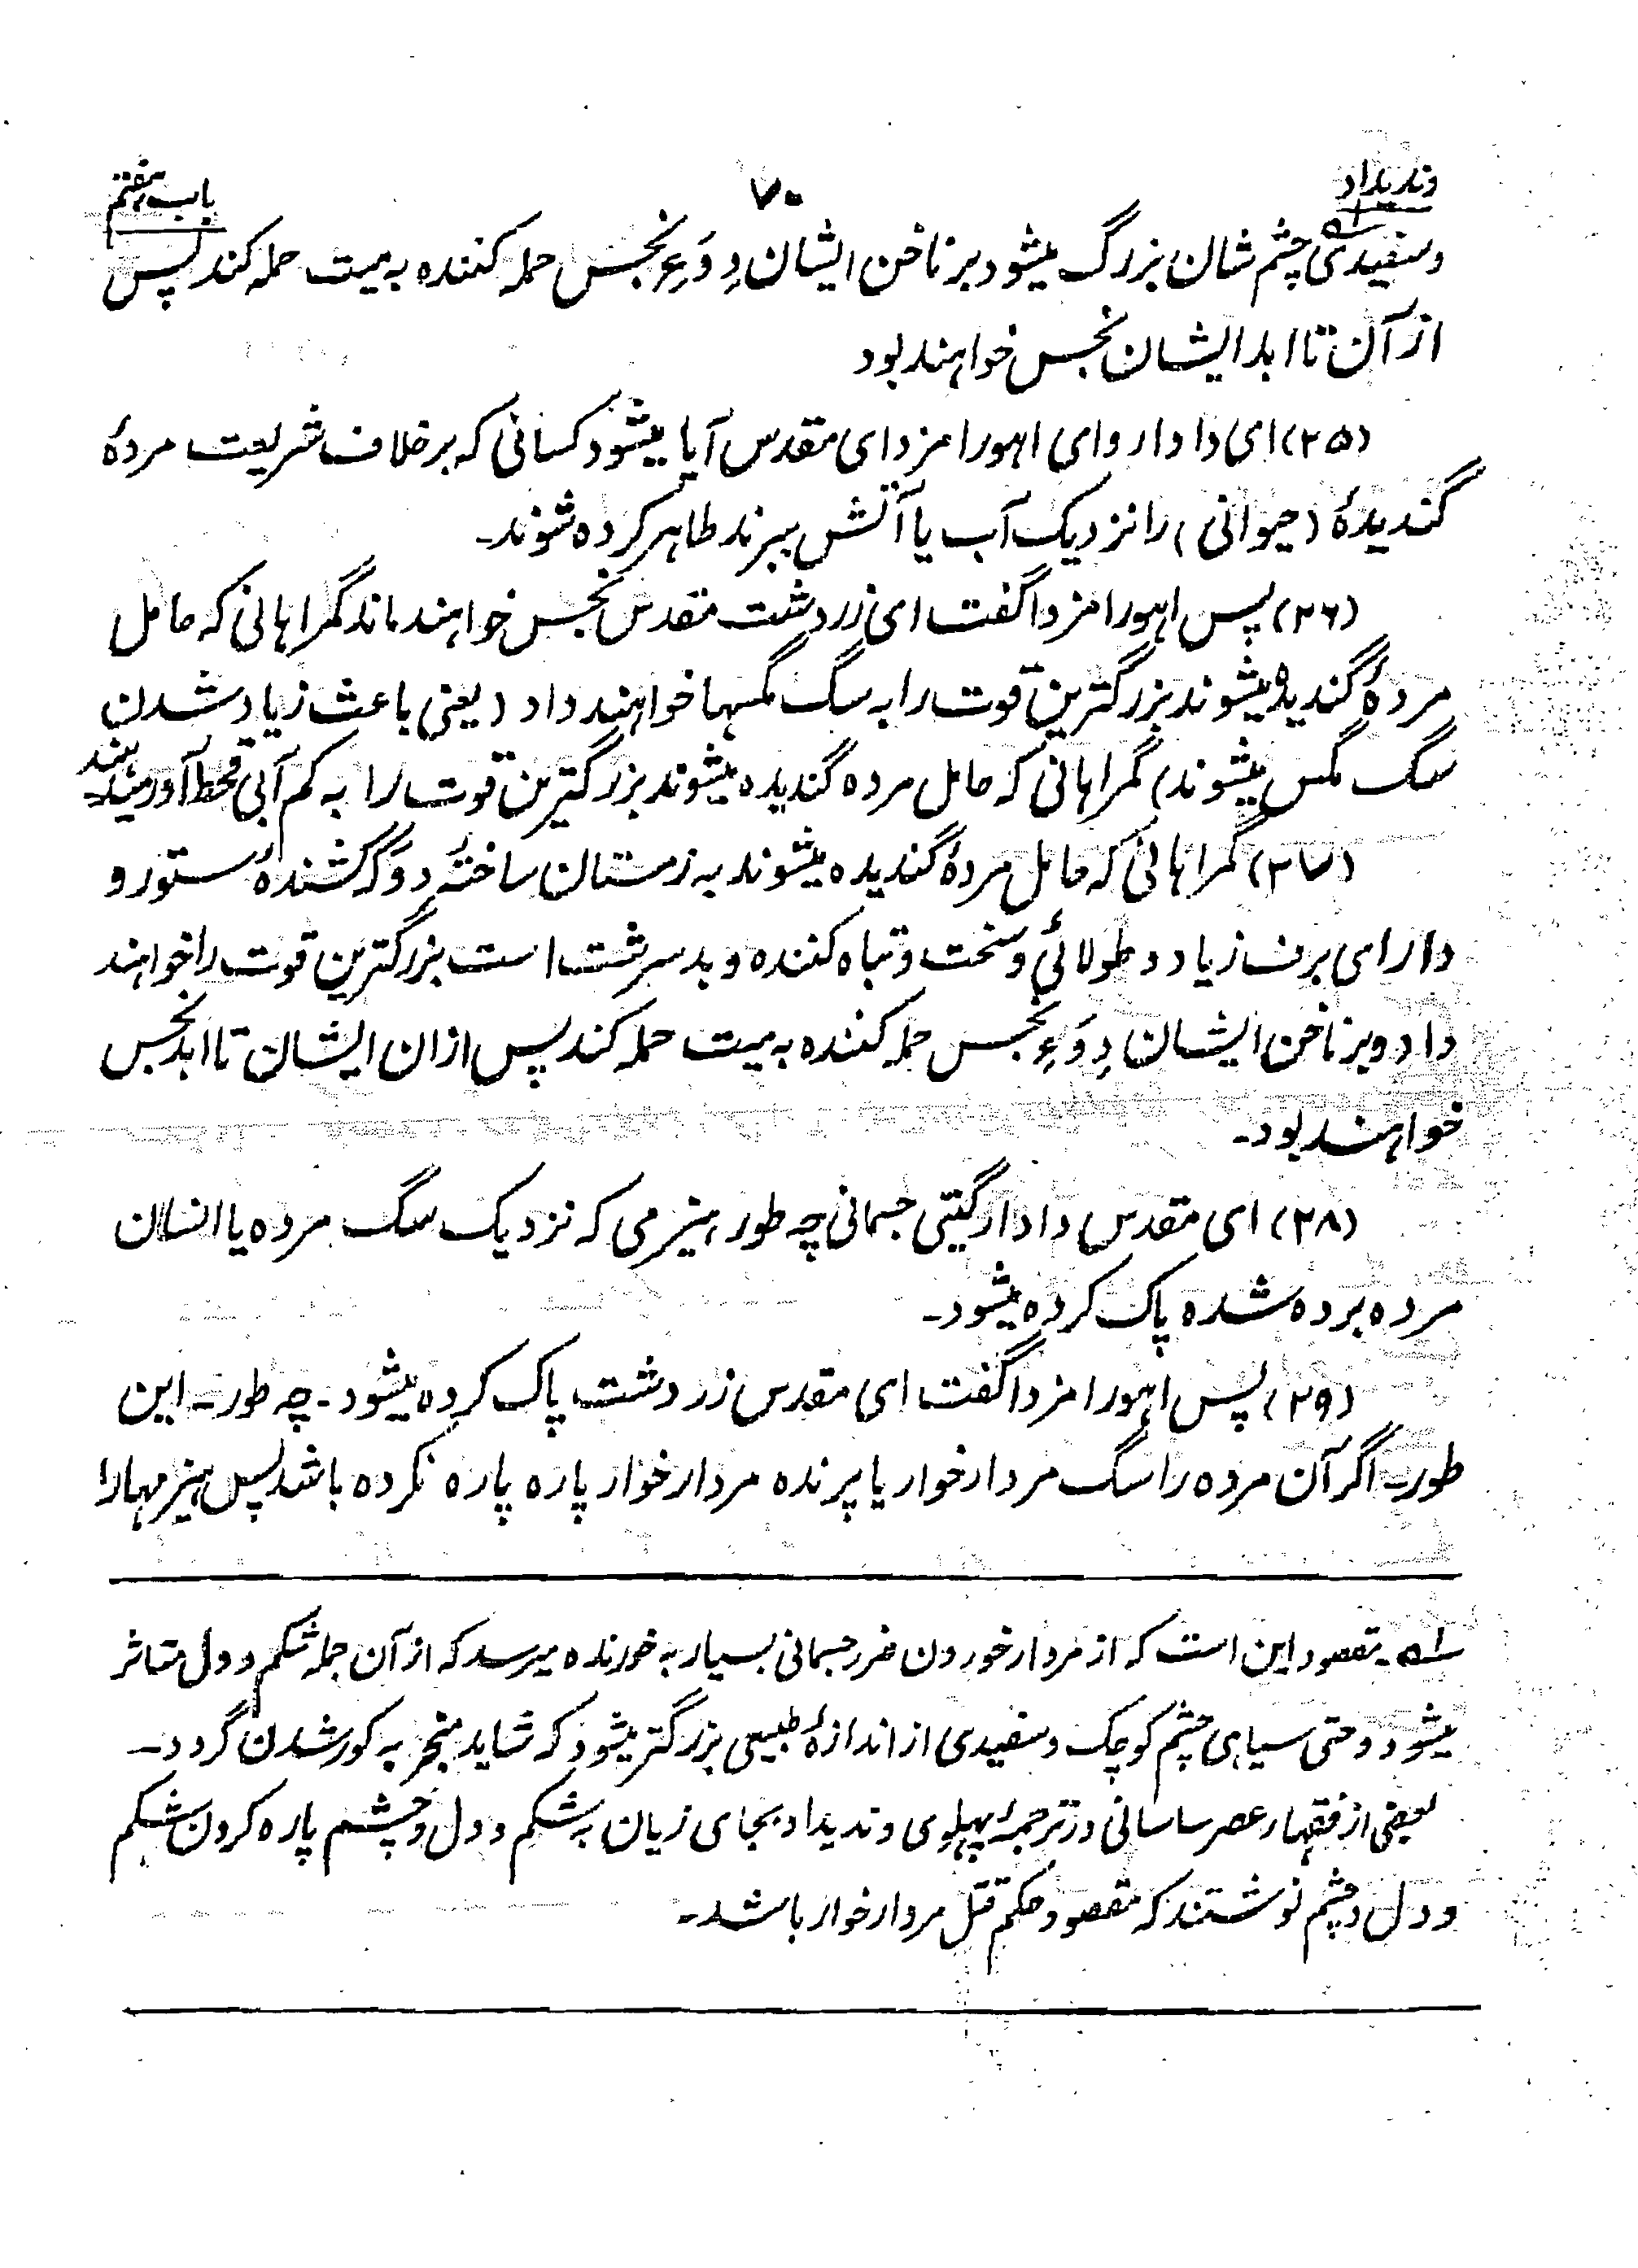 وندیداد
۷۰
باب هفتم
وسفیدی چشم شان بزرگ میشود بر ناخن ایشان دِوَءِ نجس حمله کننده به میت حمله کند پس
از آن تا ابد ایشان نجس خواهند بود
(۲۵) ای دادار و ای اهورا مزدای مقدس آیا میشود کسانی که بر خلاف شریعت مردهٔ
گندیدهٔ (حیوانی) را نزدیک آب یا آتش ببرند طاهر کرده شوند۔
(۲۶) پس اهورا مزدا گفت ای زردشت مقدس نجس خواهند ماند گمراهانی که حامل
مردهٔ گندیده میشوند بزرگترین قوت را به سگ مگسها خواهند داد (یعنی باعث زیاد شدن
سگ مگس میشوند) گمراهانی که حامل مرده گندیده میشوند بزرگترین قوت را به کم آبی قحط آور میدهند
(۲۷) گمراهانی که حامل مردهٔ گندیده میشوند به زمستان ساختهٔ دِوَ که کشندهٔ ستور و
دارای برف زیاد و طولائی و سخت و تباه کننده و بد سرشت است بزرگترین قوت را خواهند
داد و بر ناخن ایشان دِوَءِ نجس حمله کننده به میت حمله کند پس ازان ایشان تا ابد نجس
خواهند بود۔
(۲۸) ای مقدس دادار گیتی جسمانی چه طور هیزمی که نزدیک سگ مرده یا انسان
مرده برده شده پاک کرده میشود۔
(۲۹) پس اهورا مزدا گفت ای مقدس زردشت پاک کرده میشود۔ چه طور۔ این
طور۔ اگر آن مرده را سگ مردار خوار یا پرنده مردار خوار پاره پاره نکرده باشد پس هیزمها را
۵۱۔ مقصود این است که از مردار خوردن ضرر جسمانی بسیار به خورنده میرسد که از آن جمله شکم و دل متاثر
میشود و حتی سیاهی چشم کوچک و سفیدی از اندازهٔ طبیعی بزرگتر میشود که شاید منجر به کور شدن گردد۔
بعضی از فقهاء عصر ساسانی در ترجمهٔ پهلوی وندیداد بجای زیان به شکم و دل و چشم پاره کردن شکم
و دل و چشم نوشتند که مقصود حکم قتل مردار خوار باشد۔